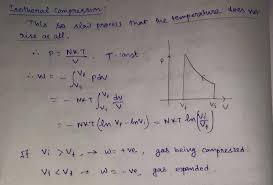 Isothermal Compression:
This so slow process that the temperature does not
rise at all.
∴ P = NKT/V, T - const
∴ W = - ∫_{Vi}^{Vf} P dV
= - NKT ∫_{Vi}^{Vf} dV/V
= - NKT (ln Vf - ln Vi) = NKT ln (Vi/Vf)
If Vi > Vf → W = +ve, gas being compressed
Vi < Vf → W = -ve, gas expanded
P
Vf
Vi
V